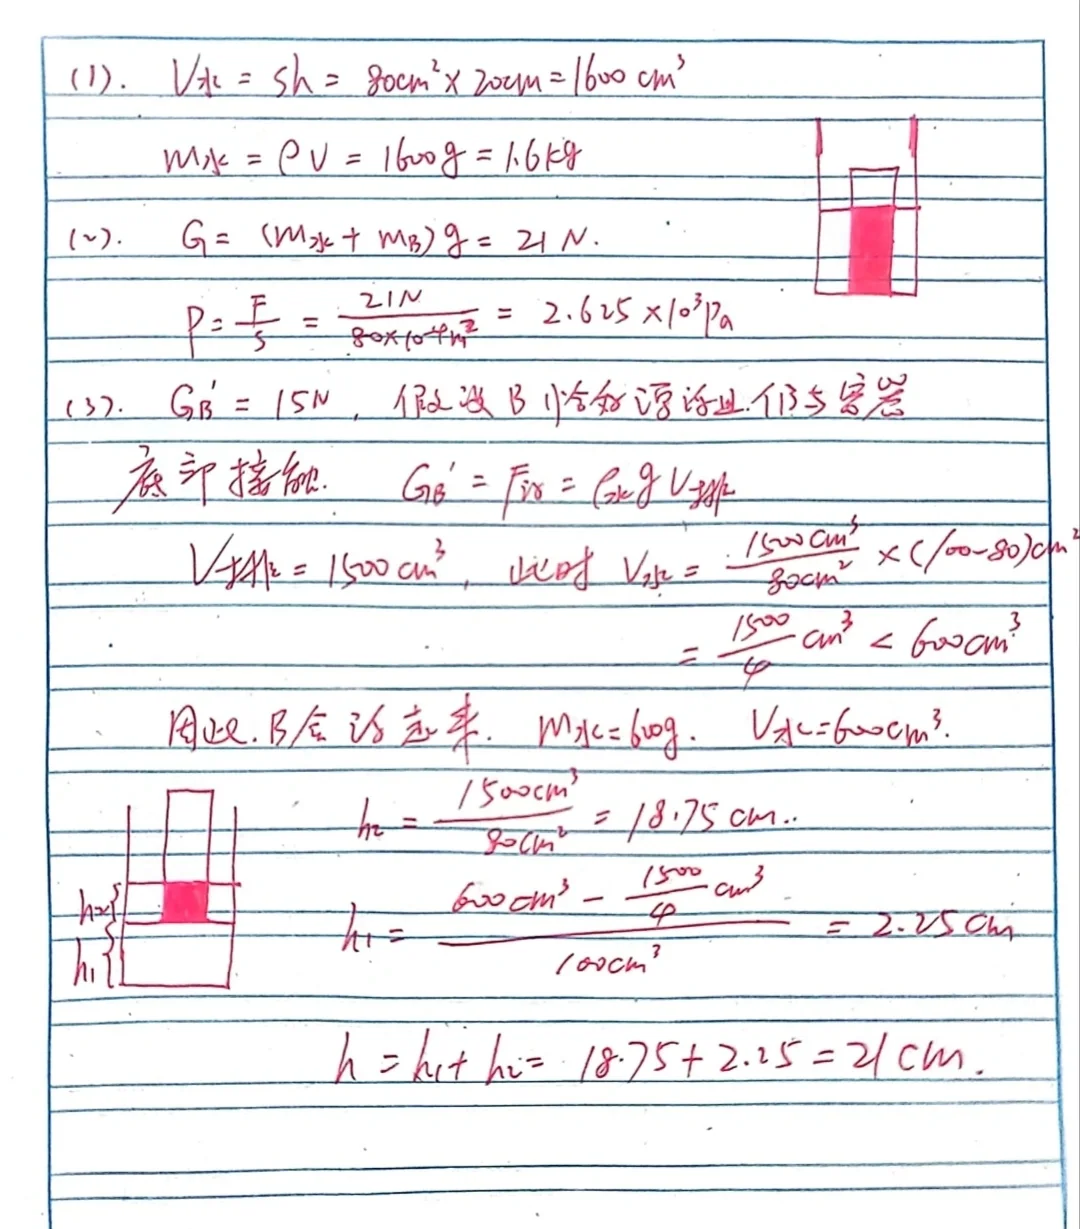 (1). V水 = Sh = 80cm²×20cm=1600cm³
m水 = ρV = 1600g = 1.6kg
(2). G = (m水 + mB)g = 21N.
P = F/S = 21N/80×10⁻⁴m² = 2.625×10³Pa
(3). GB' = 15N, 假设B恰好漂浮且仍与容器
底部接触. GB' = F浮 = ρ水gV排
V排 = 1500cm³, 此时 V水 = 1500cm³/80cm² ×(100-80)cm²
= 1500/4 cm³ < 600cm³.
因此.B会浮起来. m水=600g. V水=600cm³.
h₂ = 1500cm³/80cm² = 18.75cm..
h₂
h₁
h₁ = (600cm³ - 1500/4 cm³)/100cm³ = 2.25cm
h = h₁+h₂= 18.75+2.25=21cm.